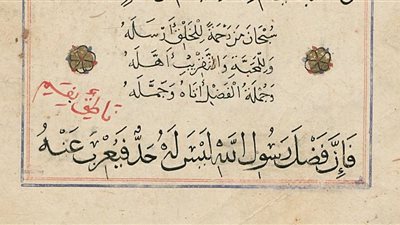 سُبْحَانَ مَنْ رَحْمَةً لِلْخَلْقِ اَرْسَلَهُ
وَلِلْمَحَبَّةِ وَالتَّقْرِيبِ اَهَّلَهُ
وَجُمْلَةَ الْفَضْلِ اٰتَاهُ وَجَمَّلَهُ
فَاِنَّ فَضْلَ رَسُولِ اللهِ لَيْسَ لَهُ حَدٌّ فَيُعْرِبَ عَنْهُ
نَاطِقٌ بِفَمِ